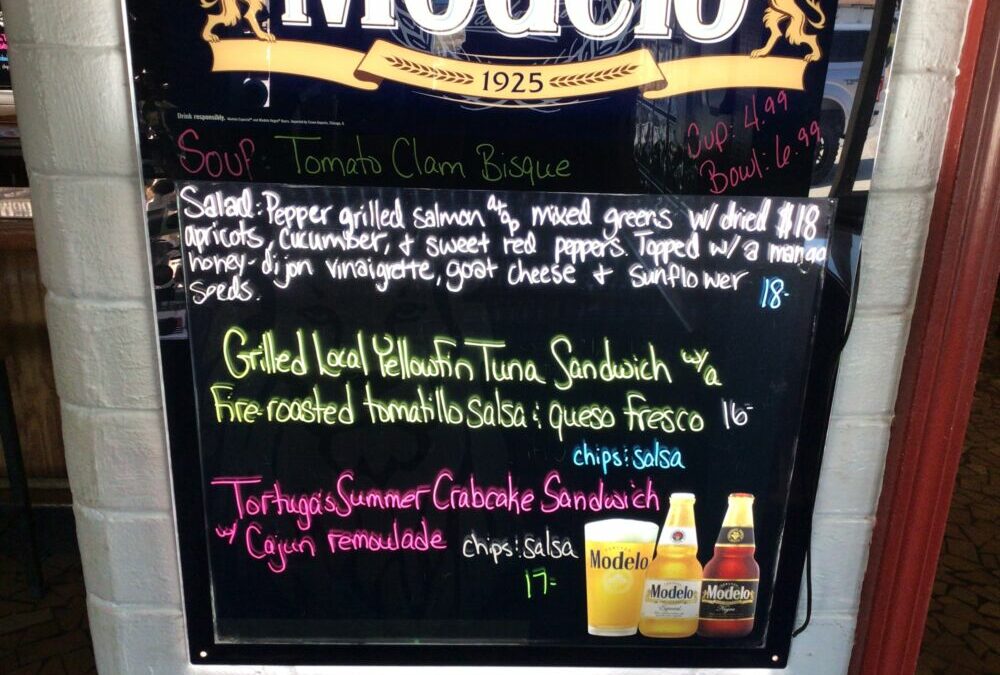 Modelo
1925
Drink responsibly.
Soup: Tomato Clam Bisque
Cup: 4.99
Bowl: 6.99
Salad: Pepper grilled salmon atop mixed greens w/ dried $18
apricots, cucumber, & sweet red peppers. Topped w/ a mango
honey-dijon vinaigrette, goat cheese & sunflower
seeds. 18-
Grilled Local Yellowfin Tuna Sandwich w/a
Fire-roasted tomatillo salsa & queso fresco 16-
chips & salsa
Tortuga's Summer Crabcake Sandwich
w/ Cajun remoulade chips & salsa
17-
Modelo
Modelo
Especial
Modelo
Negra